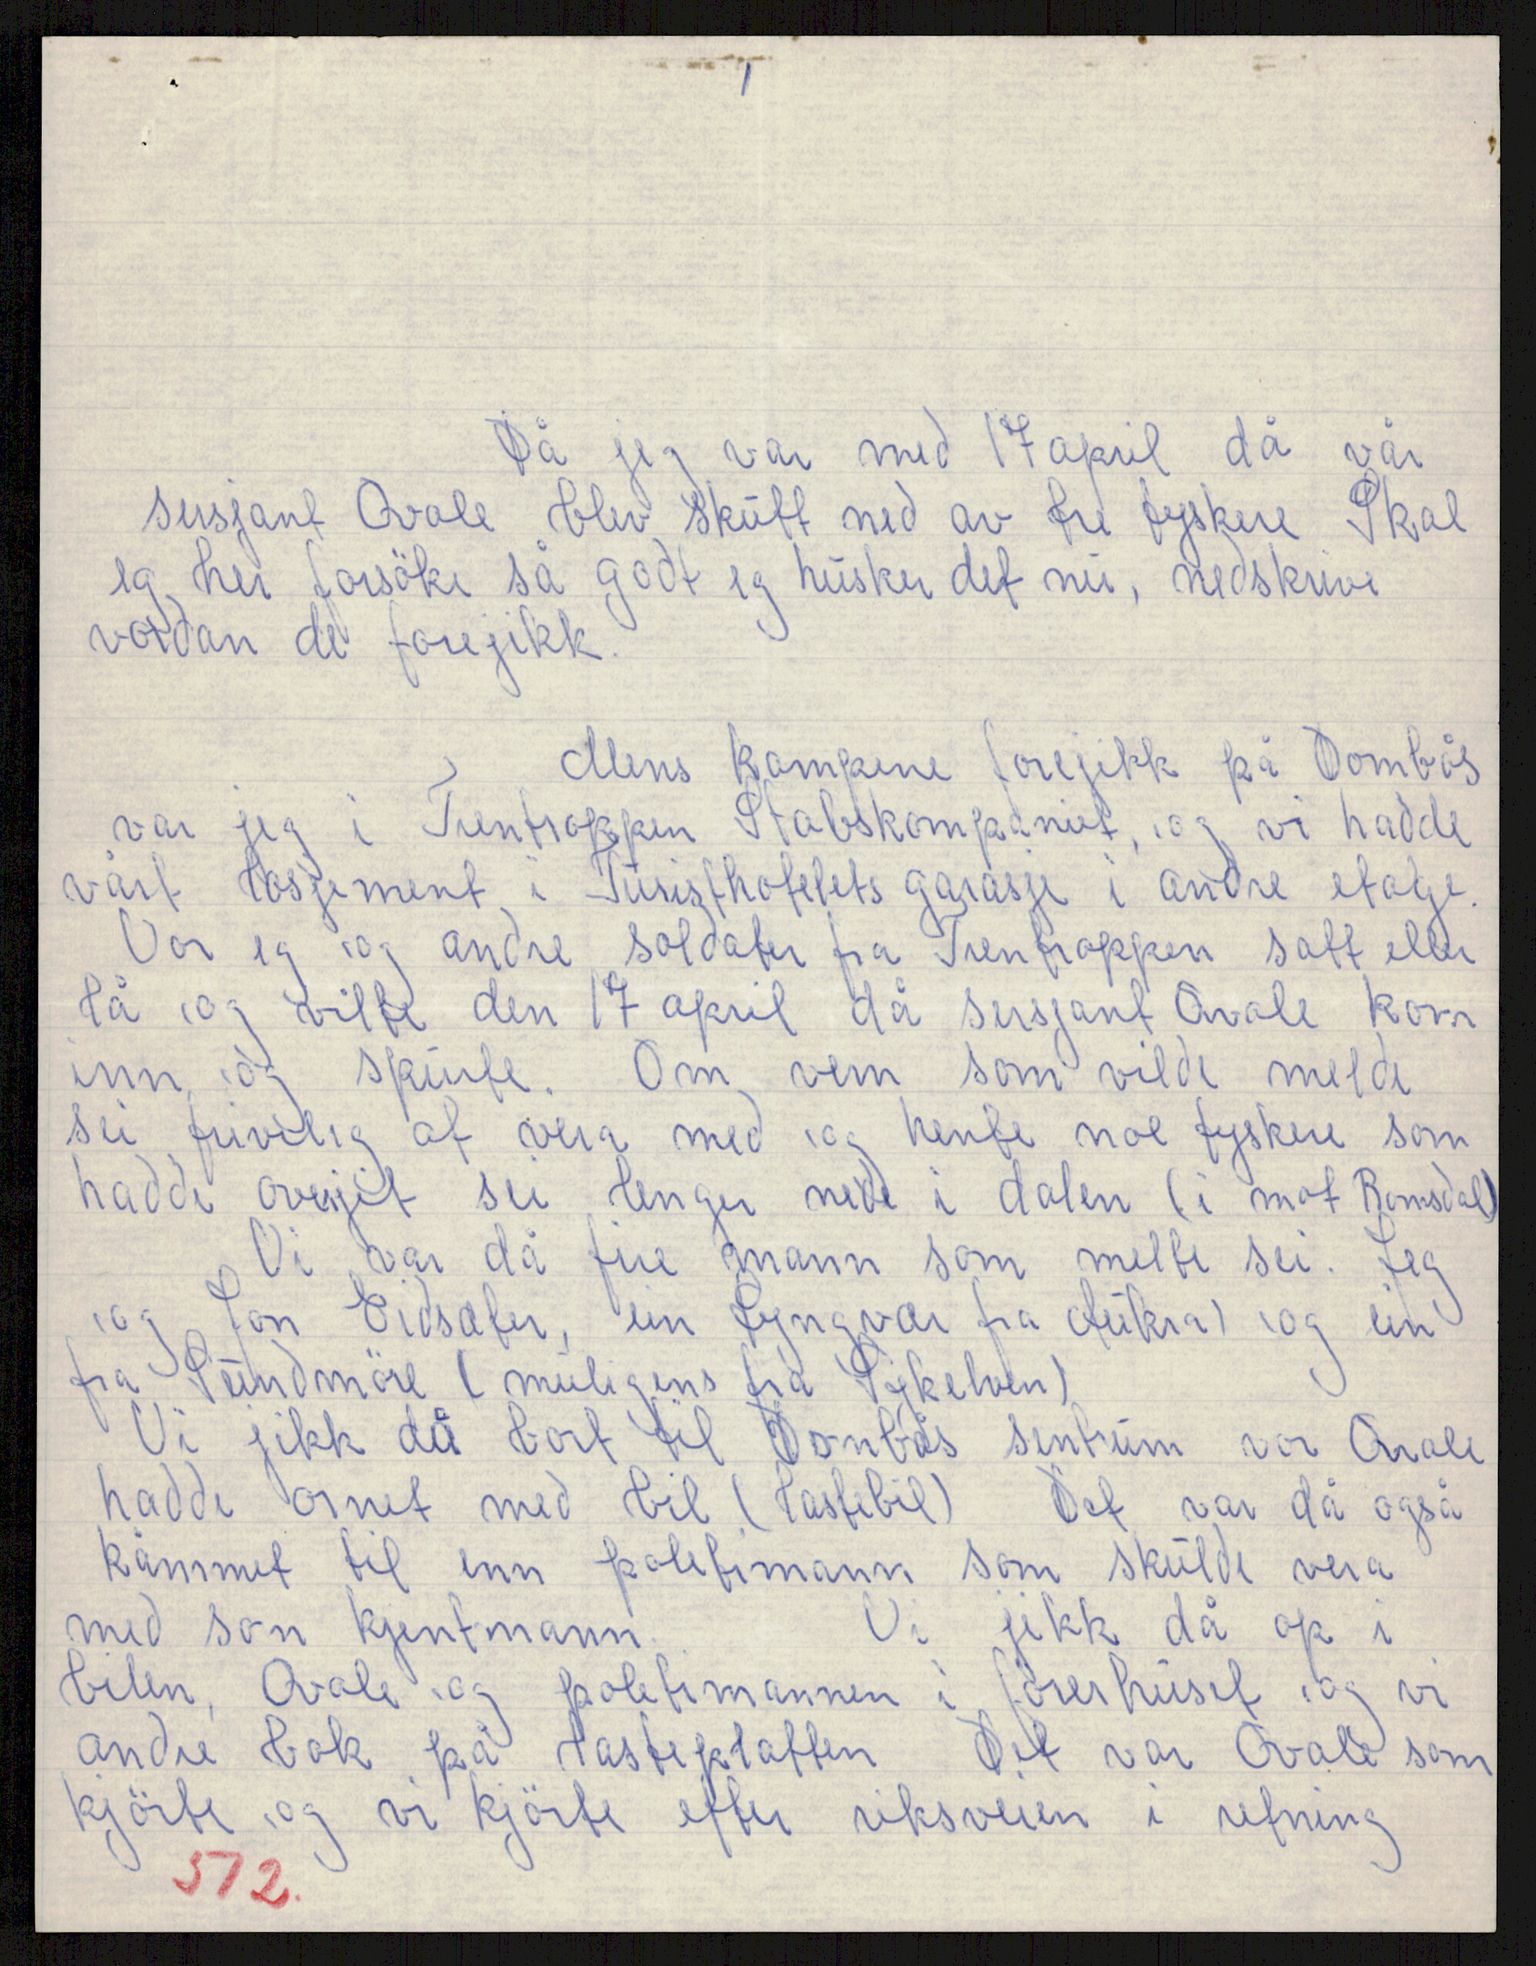 1
Då jeg var med 17 april då vår
sersjant Qvale blev skütt ned av tre tyskere Skal
eg her forsöke så godt eg hüsker det nü, nedskrive
vordan de foregikk.
Mens kampene foregikk på Dombås
var jeg i Trentroppen Stabskompaniet, og vi hadde
vårt losjement i Türisthotelets garasje i andre etage.
Vor eg og andre soldater fra Trentroppen satt eller
lå og vilte den 17 april då sersjant Qvale kom
inn og spürte. Om vem som vilde melde
sei frivelig at vera med og hente noe tyskere som
hadde overgit sei lenger nede i dalen (i mot Romsdal)
Vi var då fire mann som melte sei. Jeg
og Jon Eidsæter, ein Lyngvær fra Aükra, og ein
fra Sündmöre (müligens fra Sykelven)
Vi jikk då bort til Dombås sentrüm vor Qvale
hadde ornet med bil (lastebil) Det var då også
kåmmet til enn poletimann som skülde vera
med som kjentmann. Vi jikk då op i
bilen, Qvale og poletimannen i förerhüset og vi
andre bak på lasteplatten Det var Qvale som
kjörte og vi kjörte efter riksveien i retning
572.